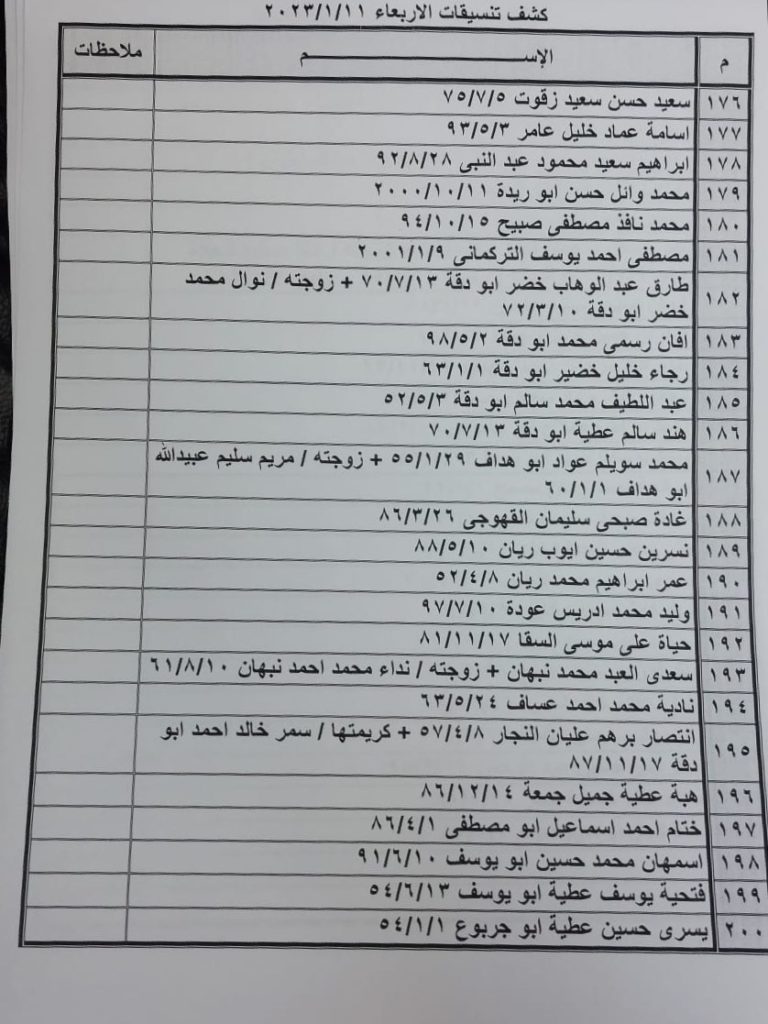 كشف تنسيقات الاربعاء ٢٠٢٣/١/١١
م الإســـــــم ملاحظات
١٧٦ سعيد حسن سعيد زقوت ٧٥/٧/٥
١٧٧ اسامة عماد خليل عامر ٩٣/٥/٣
١٧٨ ابراهيم سعيد محمود عبد النبى ٩٢/٨/٢٨
١٧٩ محمد وائل حسن ابو ريدة ٢٠٠٠/١٠/١١
١٨٠ محمد نافذ مصطفى صبيح ٩٤/١٠/١٥
١٨١ مصطفى احمد يوسف التركمانى ٢٠٠١/١/٩
١٨٢ طارق عبد الوهاب خضر ابو دقة ٧٠/٧/١٣ + زوجته / نوال محمد
خضر ابو دقة ٧٢/٣/١٠
١٨٣ افان رسمى محمد ابو دقة ٩٨/٥/٢
١٨٤ رجاء خليل خضير ابو دقة ٦٣/١/١
١٨٥ عبد اللطيف محمد سالم ابو دقة ٥٢/٥/٣
١٨٦ هند سالم عطية ابو دقة ٧٠/٧/١٣
١٨٧ محمد سويلم عواد ابو هداف ٥٥/١/٢٩ + زوجته / مريم سليم عبيدالله
ابو هداف ٦٠/١/١
١٨٨ غادة صبحى سليمان القهوجى ٨٦/٣/٢٦
١٨٩ نسرين حسين ايوب ريان ٨٨/٥/١٠
١٩٠ عمر ابراهيم محمد ريان ٥٢/٤/٨
١٩١ وليد محمد ادريس عودة ٩٧/٧/١٠
١٩٢ حياة على موسى السقا ٨١/١١/١٧
١٩٣ سعدى العبد محمد نبهان + زوجته / نداء محمد احمد نبهان ٦١/٨/١٠
١٩٤ نادية محمد احمد عساف ٦٣/٥/٢٤
١٩٥ انتصار برهم عليان النجار ٥٧/٤/٨ + كريمتها / سمر خالد احمد ابو
دقة ٨٧/١١/١٧
١٩٦ هبة عطية جميل جمعة ٨٦/١٢/١٤
١٩٧ ختام احمد اسماعيل ابو مصطفى ٨٦/٤/١
١٩٨ اسمهان محمد حسين ابو يوسف ٩١/٦/١٠
١٩٩ فتحية يوسف عطية ابو يوسف ٥٤/٦/١٣
٢٠٠ يسرى حسين عطية ابو جربوع ٥٤/١/١